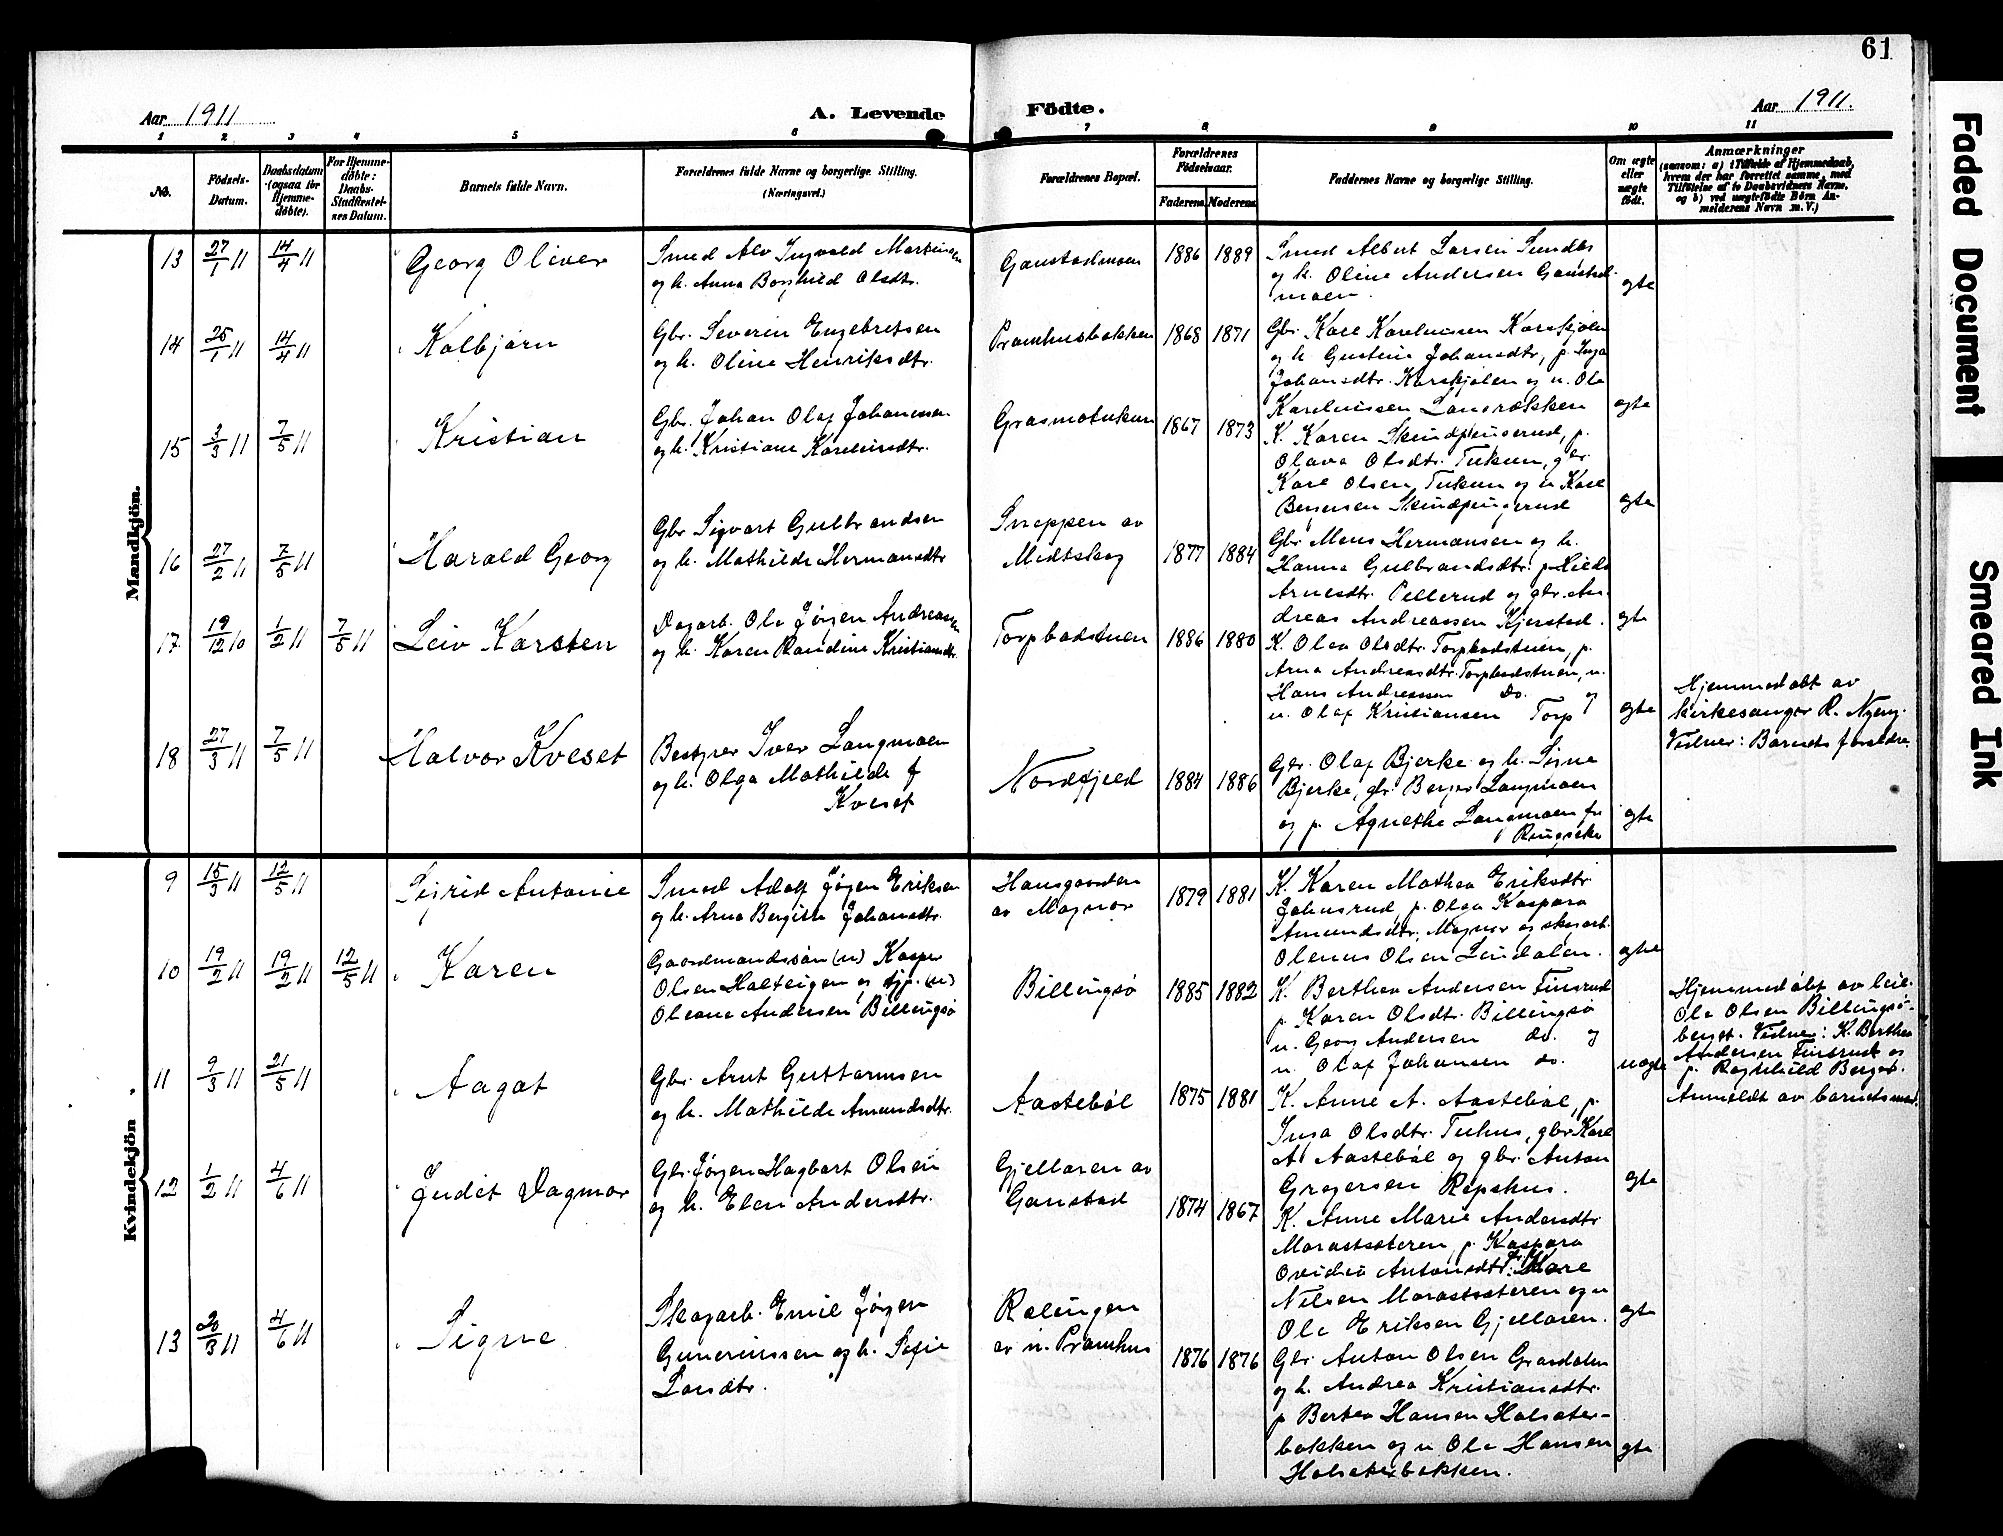 61
Aar 1911
A. Levende
Födte.
Aar 1911.
1 2 3 4 5 6 7 8 9 10 11
No.
Födsels-
Datum.
Daabsdatum
(ogsaa for
Hjemme-
döbte).
For Hjemme-
döbte:
Daabs-
Stadfæstel-
ses Datum.
Barnets fulde Navn.
Forældrenes fulde Navne og borgerlige Stilling.
(Næringsvei.)
Forældrenes Bopæl.
Forældrenes
Födselsaar.
Faderens
Moderens
Faddernes Navne og borgerlige Stilling.
Om ægte
eller
uægte
födt.
Anmærkninger
(saasom: a) i Tilfælde af Hjemmedaab,
hvem der har forrettet samme, med
Tilföielse af to Daabsvidners Navne,
og b) ved uægtefödte Börn An-
melderens Navn m. V.)
Mandkjön.
13 27/1 11 14/4 11 Georg Oliver
Smed Alv Ingvald Martinsen
og h. Anna Borghild Olsdtr.
Gaustadmoen 1886 1889
Smed Albert Larsen Sundås
og h. Oline Andersen Gaustad-
moen. ægte
14 25/1 11 14/4 11 Kolbjørn
Gbr. Severin Engebretsen
og h. Oline Henriksdtr.
Pramhusbakken 1868 1871
Gbr. Karl Karelinssen Karskjølen
og h. Gustine Johansdtr, p. Inga
Johansdtr. Karskjølen og u. Ole
Kareliussen ægte
15 3/3 11 7/5 11 Kristian
Gbr. Johan Olaf Johanessen
og h. Kristiane Kareliusdtr.
Grasmotukun 1867 1873
K. Karen Skindpungerud, p.
Olava Olsdtr. Tukun, gbr.
Karl Olsen Tukun og u. Karl
Bergersen Skindpungerud ægte
16 27/2 11 7/5 11 Harald Georg
Gbr Sigvart Gulbrandsen
og h. Mathilde Hermansdtr
Snoppen av
Midtskog 1877 1884
Gbr Mons Hermansen og h.
Hanna Gulbrandsdtr. p. Hilda
Arnesdtr. Pellerud og gbr. An-
dreas Andreassen Kjerstad. ægte
17 19/12 10 1/2 11 7/5 11 Leiv Karsten
Dagarb. Ole Jørgen Andreassen
og h. Karen Randine Kristiansdtr.
Torpbadstuen 1886 1880
K. Olea Olsdtr. Torpbadstuen, p.
Arna Andreasdtr. Torpbadstuen, u.
Hans Andreassen Do. og
u. Olaf Kristiansen Torp ægte
Hjemmedøbt av
kirkesanger R. Nyeng.
Vidner: Barnets forældre.
18 27/3 11 7/5 11 Halvor Kveset
Bestyrer Iver Langmoen
og h. Olga Mathilde f
Kveset
Nordfjeld 1884 1886
Gbr. Olaf Bjerke og h. Signe
Bjerke, gbr. Berger Langmoen
og p. Agnethe Langmoen fra
Ringsaker ægte
Kvindekjön
9 15/3 11 12/5 11 Sigrid Antonie
Smed Adolf Jørgen Eriksen
og h. Arna Bergitte Johansdtr.
Hansgaarden
av Magnor 1879 1881
K. Karen Mathea Eriksdtr
Johnsrud, p. Olga Kaspara
Amundsdtr. Magnor og skogarb.
Olenus Olsen Lindalen. ægte
10 19/2 11 19/2 11 12/5 11 Karen
Gaardmandssøn (u) Kasper
Olsen Halteigen og tjp. (u)
Oleane Andersen Billingsø
Billingsø 1885 1882
K. Berthea Andersen Finsrud
p. Karen Olsdtr. Billingsø
u. Georg Andersen do. og
u. Olaf Johansen do. uægte
Hjemmedøbt av leil.
Ole Olsen Billingsø-
berget. Vidner: K. Berthea
Andersen Finsrud og
p. Ragnhild Berget.
Anmeldt av barnets mor.
11 9/3 11 21/5 11 Aagot
Gbr Arnt Guttormsen
og h. Mathilde Amundsdtr.
Aastebøl 1875 1881
K. Anne A. Aastebøl, p.
Inga Olsdtr. Tuhus, gbr Karl
A. Aastebøl og gbr. Anton
Gregersen Repshus. ægte
12 1/2 11 4/6 11 Judit Dagmar
Gbr. Jørgen Hagbart Olsen
og h. Elen Andersdtr.
Gjellaren av
Gaustad 1874 1867
K. Anne Marie Andersdtr
Morastsæteren, p. Kaspara
Ovidia Antonsdtr.
Nilsen Morastsæteren og u
Ole Eriksen Gjellaren. ægte
13 20/3 11 4/6 11 Signe
Skogarb. Emil Jørgen
Gunerinssen og h. Sofie
Larsdtr.
Rælingen
av n. Pramhus 1876 1876
Gbr. Anton Olsen Grasdalen
og h. Andrea Kristiansdtr.
p Bertea Hansen Holsæter-
bakken og u Ole Hansen
Holsæterbakken. ægte
Faded Document
Smeared Ink